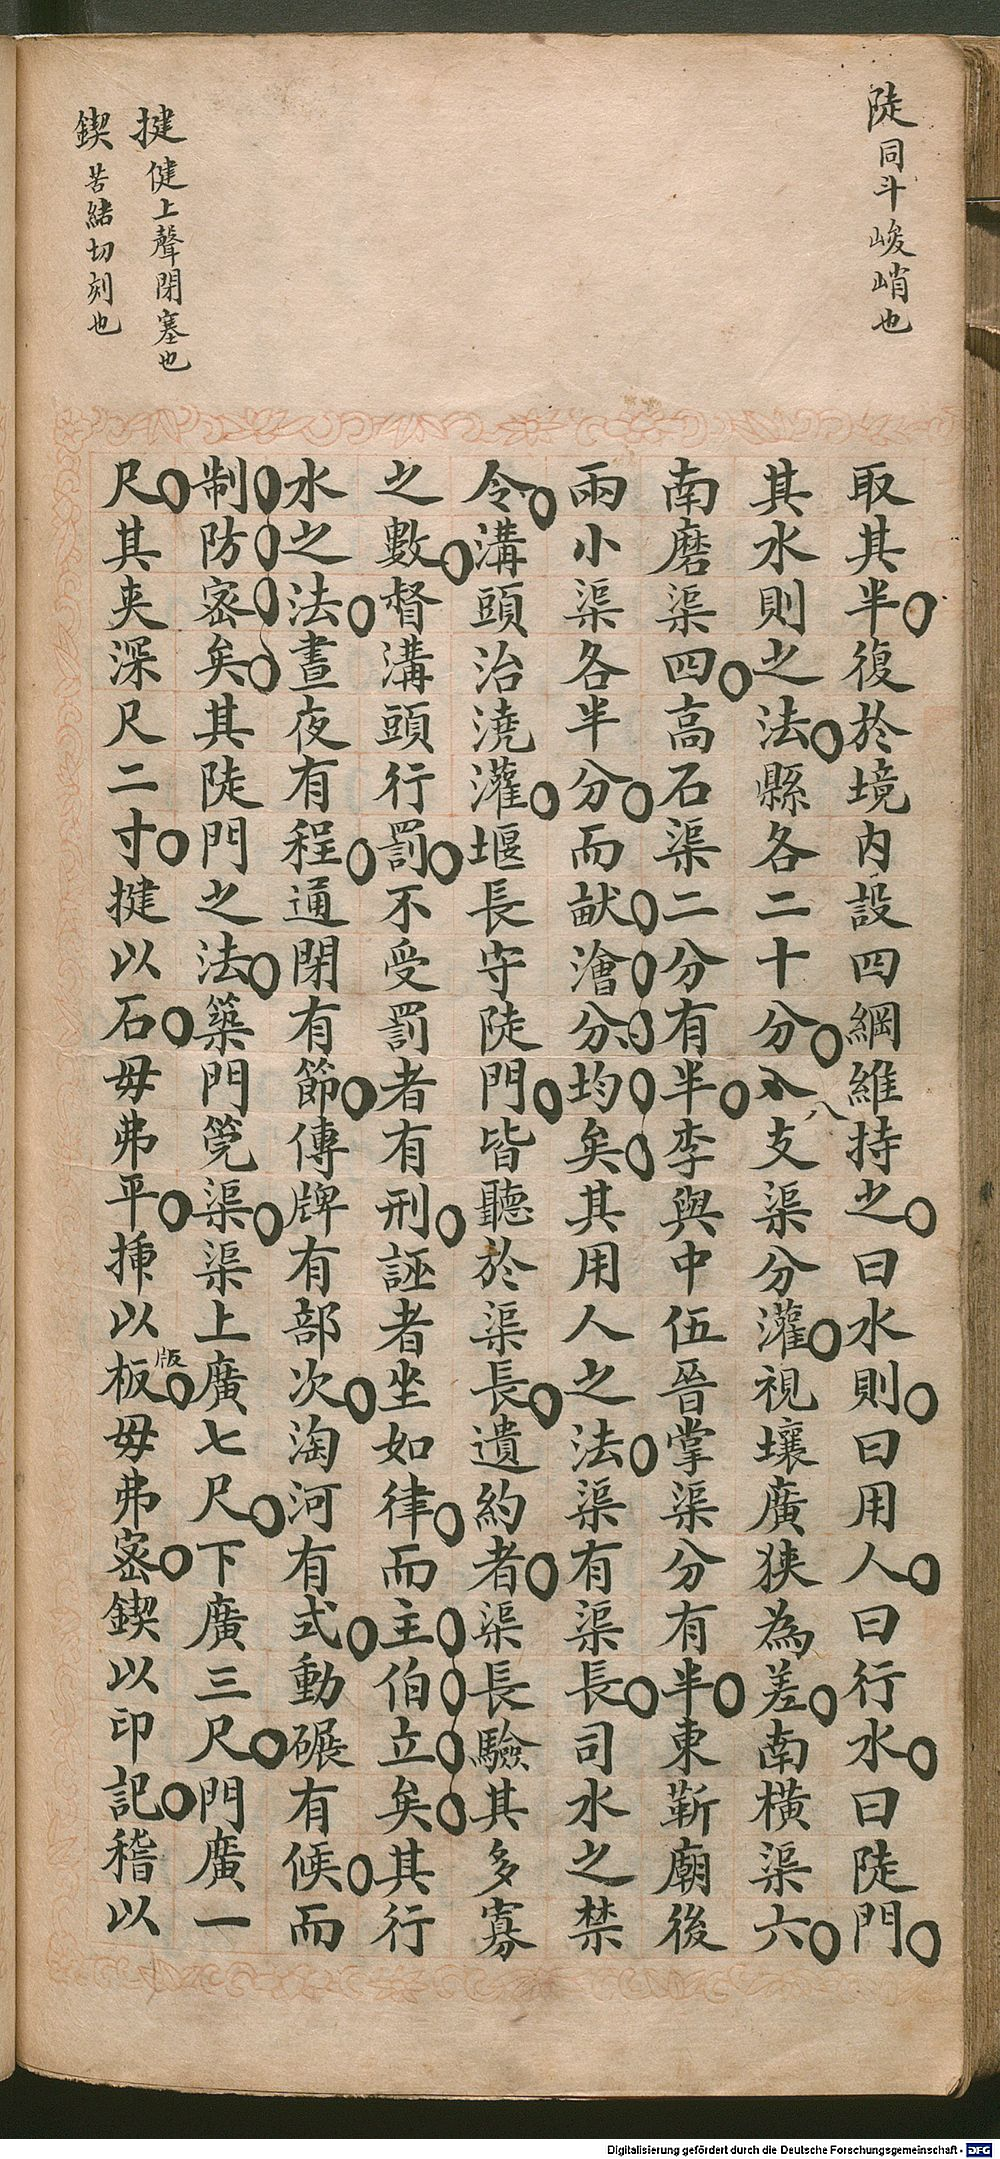 陡 同斗峻峭也
揵 健上聲閉塞也
鍥 苦緒切刻也
取其半復於境内設四綱維持之曰水則曰用人曰行水曰陡門
其水則之法縣各二十分八支渠分灌視壤廣狹為差南橫渠六
南磨渠四高石渠二分有半李與中伍晉掌渠分有半東靳廟後
兩小渠各半分而畎澮分均矣其用人之法渠有渠長司水之禁
令溝頭治澆灌堰長守陡門皆聽於渠長遺約者渠長驗其多寡
之數督溝頭行罰不受罰者有刑誣者坐如律而主伯立矣其行
水之法晝夜有程通閉有節傳牌有部次淘河有式動碾有候而
制防密矣其陡門之法築門筦渠渠上廣七尺下廣三尺門廣一
尺其夾深尺二寸揵以石毋弗平捶以板版毋弗密鍥以印記稽以
Digitalisierung gefördert durch die Deutsche Forschungsgemeinschaft - DFG